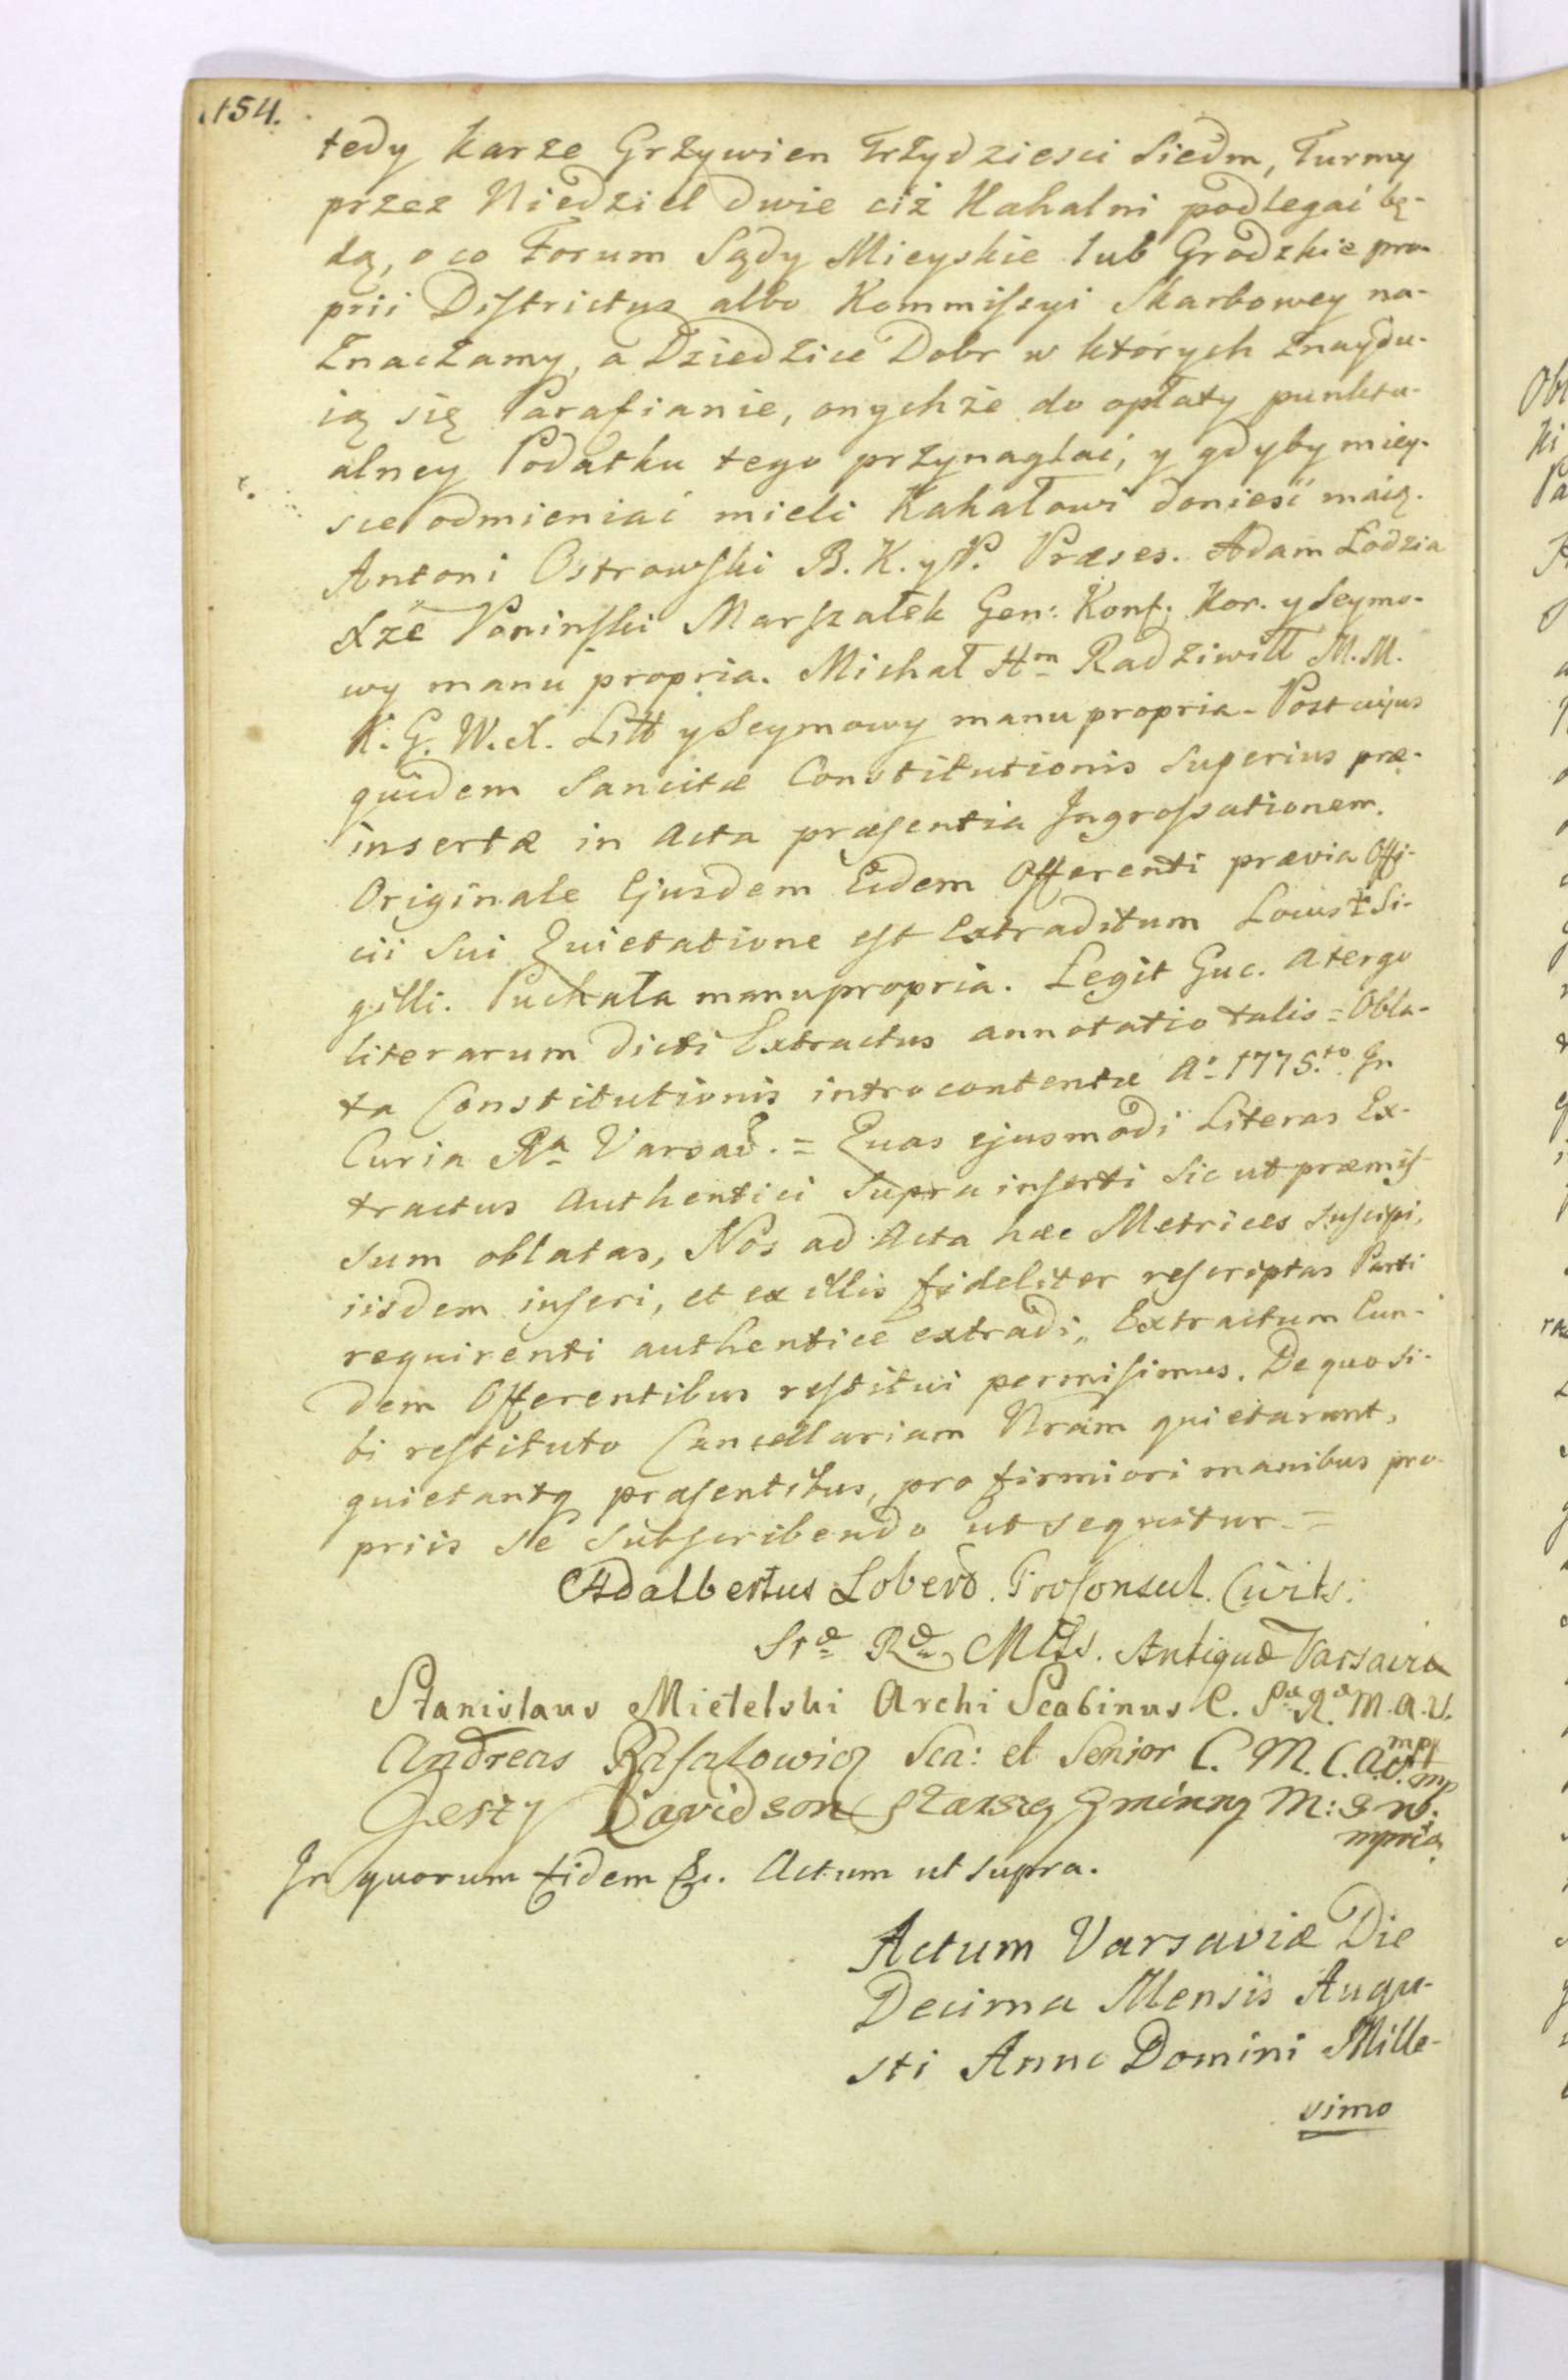 154.
tedy karze Grzywien Trzydziesci Siedm, Turmy
przez Niedziel dwie ciż Kahalni podlegać bę-
dą, o co Forum Sądy Mieyskie lub Grodzkie pro-
prii Districtus albo Kommissyi Skarbowey na-
znaczamy, a Dziedzice Dobr w których znaydu-
ią się Parafianie, onychże do opłaty punktu-
alney Podatku tego przynaglać, y gdyby miey-
sce odmieniać mieli Kahałowi donieść maią.
Antoni Ostrowski B. K. y P. Præses. Adam Łodzia
Xże Poninski Marszałek Gen: Konf: Kor. y Seymo-
wy manu propria. Michał Hrn Radziwiłł M. M.
K. G. W. X. Litt y Seymowy manu propria - Post cujus
quidem Sancitæ Constitutionis superius præ-
insertæ in Acta præsentia Ingrossationem.
Originale Ejusdem Eidem Offerenti prævia Offi-
cii sui Quietatione est Extraditum Locus Si-
gilli. Puchała manu propria. Legit Guc. A tergo
literarum dicti Extractus annotatio talis = Obla-
ta Constitutionis introcontentæ Ao 1775.to In
Curia Ra Varsav. = Quas ejusmodi Literas Ex-
tractus Authentici supra inserti sic ut præmis-
sum oblatas, Nos ad Acta hæc Metrices suscipi,
iisdem inseri, et ex illis fideliter rescriptas Parti
requirenti authentice extradi, Extractum Eun-
dem Offerentibus restitui permisimus. De quo si-
bi restituto Cancellariam Nram quietarunt,
quietantq præsentibus, pro firmiori manibus pro-
priis se subscribendo ut sequitur. =
Adalbertus Lobert. Proconsul. Civits:
Sræ Ræ Mtts. Antiquæ Varsaviæ
Stanislaus Mietelski Archi Scabinus C. S R. M. A. V.
mpp
Andreas Rafalowicz Sca: et Senior C. M. C. A. V. mp
Jerzy Dawidson Starszy Gminny M: S W:
mpria
In quorum fidem &c. Actum ut supra.
Actum Varsaviæ Die
Decima Mensis Augu-
sti Anno Domini Mille-
simo